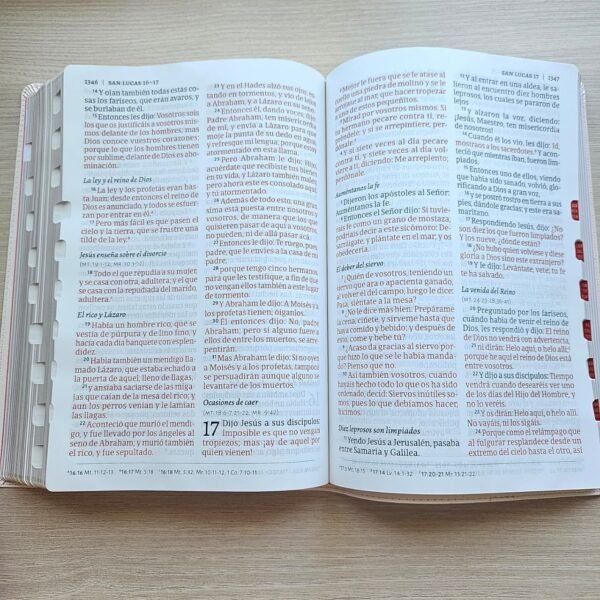 1346 | SAN LUCAS 16–17
14 Y oían también todas estas co-
sas los fariseos, que eran avaros, y
se burlaban de él.
15 Entonces les dijo: Vosotros sois
los que os justificáis a vosotros mis-
mos delante de los hombres; mas
Dios conoce vuestros corazones;
porque lo que los hombres tienen
por sublime, delante de Dios es abo-
minación.
La ley y el reino de Dios
16 La ley y los profetas eran has-
ta Juan; desde entonces el reino de
Dios es anunciado, y todos se esfuer-
zan por entrar en él.
17 Pero más fácil es que pasen el
cielo y la tierra, que se frustre una
tilde de la ley.
Jesús enseña sobre el divorcio
(MT. 19.1-12; MR. 10.1-12)
18 Todo el que repudia a su mujer,
y se casa con otra, adultera; y el que
se casa con la repudiada del marido,
adultera.
El rico y Lázaro
19 Había un hombre rico, que se
vestía de púrpura y de lino fino, y
hacía cada día banquete con esplen-
didez.
20 Había también un mendigo lla-
mado Lázaro, que estaba echado a
la puerta de aquel, lleno de llagas,
21 y ansiaba saciarse de las miga-
jas que caían de la mesa del rico; y
aun los perros venían y le lamían
las llagas.
22 Aconteció que murió el mendi-
go, y fue llevado por los ángeles al
seno de Abraham; y murió también
el rico, y fue sepultado.
23 Y en el Hades alzó sus ojos, es-
tando en tormentos, y vio de lejos
a Abraham, y a Lázaro en su seno.
24 Entonces él, dando voces, dijo:
Padre Abraham, ten misericordia
de mí, y envía a Lázaro para que
moje la punta de su dedo en agua,
y refresque mi lengua; porque estoy
atormentado en esta llama.
25 Pero Abraham le dijo: Hijo,
acuérdate que recibiste tus bienes
en tu vida, y Lázaro también males;
pero ahora este es consolado aquí,
y tú atormentado.
26 Además de todo esto, una gran
sima está puesta entre nosotros y
vosotros, de manera que los que
quisieren pasar de aquí a vosotros,
no pueden, ni de allá pasar acá.
27 Entonces le dijo: Te ruego, pues,
padre, que le envíes a la casa de mi
padre,
28 porque tengo cinco hermanos,
para que les testifique, a fin de que
no vengan ellos también a este lugar
de tormento.
29 Y Abraham le dijo: A Moisés y
a los profetas tienen; óiganlos.
30 Él entonces dijo: No, padre
Abraham; pero si alguno fuere a
ellos de entre los muertos, se arre-
pentirán.
31 Mas Abraham le dijo: Si no oyen
a Moisés y a los profetas, tampoco
se persuadirán aunque alguno se
levantare de los muertos.
Ocasiones de caer
(MT. 18.6-7,21-22; MR. 9.42)
17 Dijo Jesús a sus discípulos:
Imposible es que no vengan
tropiezos; mas ¡ay de aquel por
quien vienen!
SAN LUCAS 17 | 1347
2 Mejor le fuera que se le atase al
cuello una piedra de molino y se le
arrojase al mar, que hacer tropezar
a uno de estos pequeñitos.
3 Mirad por vosotros mismos. Si
tu hermano pecare contra ti, re-
préndele; y si se arrepintiere, per-
dónale.
4 Y si siete veces al día pecare
contra ti, y siete veces al día vol-
viere a ti, diciendo: Me arrepiento;
perdónale.
Auméntanos la fe
5 Dijeron los apóstoles al Señor:
Auméntanos la fe.
6 Entonces el Señor dijo: Si tuvie-
rais fe como un grano de mostaza,
podríais decir a este sicómoro: De-
sarráigate, y plántate en el mar; y os
obedecería.
El deber del siervo
7 ¿Quién de vosotros, teniendo un
siervo que ara o apacienta ganado,
al volver él del campo, luego le dice:
Pasa, siéntate a la mesa?
8 ¿No le dice más bien: Prepárame
la cena, cíñete, y sírveme hasta que
haya comido y bebido; y después de
esto, come y bebe tú?
9 ¿Acaso da gracias al siervo por-
que hizo lo que se le había manda-
do? Pienso que no.
10 Así también vosotros, cuando
hayáis hecho todo lo que os ha sido
ordenado, decid: Siervos inútiles so-
mos, pues lo que debíamos hacer,
hicimos.
Diez leprosos son limpiados
11 Yendo Jesús a Jerusalén, pasaba
entre Samaria y Galilea.
12 Y al entrar en una aldea, le sa-
lieron al encuentro diez hombres
leprosos, los cuales se pararon de
lejos
13 y alzaron la voz, diciendo:
¡Jesús, Maestro, ten misericordia
de nosotros!
14 Cuando él los vio, les dijo: Id,
mostraos a los sacerdotes. Y acon-
teció que mientras iban, fueron lim-
piados.
15 Entonces uno de ellos, viendo
que había sido sanado, volvió, glo-
rificando a Dios a gran voz,
16 y se postró rostro en tierra a sus
pies, dándole gracias; y este era sa-
maritano.
17 Respondiendo Jesús, dijo: ¿No
son diez los que fueron limpiados?
Y los nueve, ¿dónde están?
18 ¿No hubo quien volviese y diese
gloria a Dios sino este extranjero?
19 Y le dijo: Levántate, vete; tu fe
te ha salvado.
La venida del Reino
(MT. 24.23-28,36-41)
20 Preguntado por los fariseos,
cuándo había de venir el reino de
Dios, les respondió y dijo: El reino de
Dios no vendrá con advertencia,
21 ni dirán: Helo aquí, o helo allí;
porque he aquí el reino de Dios está
entre vosotros.
22 Y dijo a sus discípulos: Tiempo
vendrá cuando desearéis ver uno
de los días del Hijo del Hombre, y
no lo veréis.
23 Y os dirán: Helo aquí, o helo allí.
No vayáis, ni los sigáis.
24 Porque como el relámpago que
al fulgurar resplandece desde un
extremo del cielo hasta el otro, así
16:16 Mt. 11:12-13. 16:17 Mt. 5:18. 16:18 Mt. 5:32; Mr. 10:11-12; 1 Co. 7:10-11.
17:3 Mt. 18:15. 17:14 Lv. 14:1-32. 17:20-21 Mr. 13:21-22.